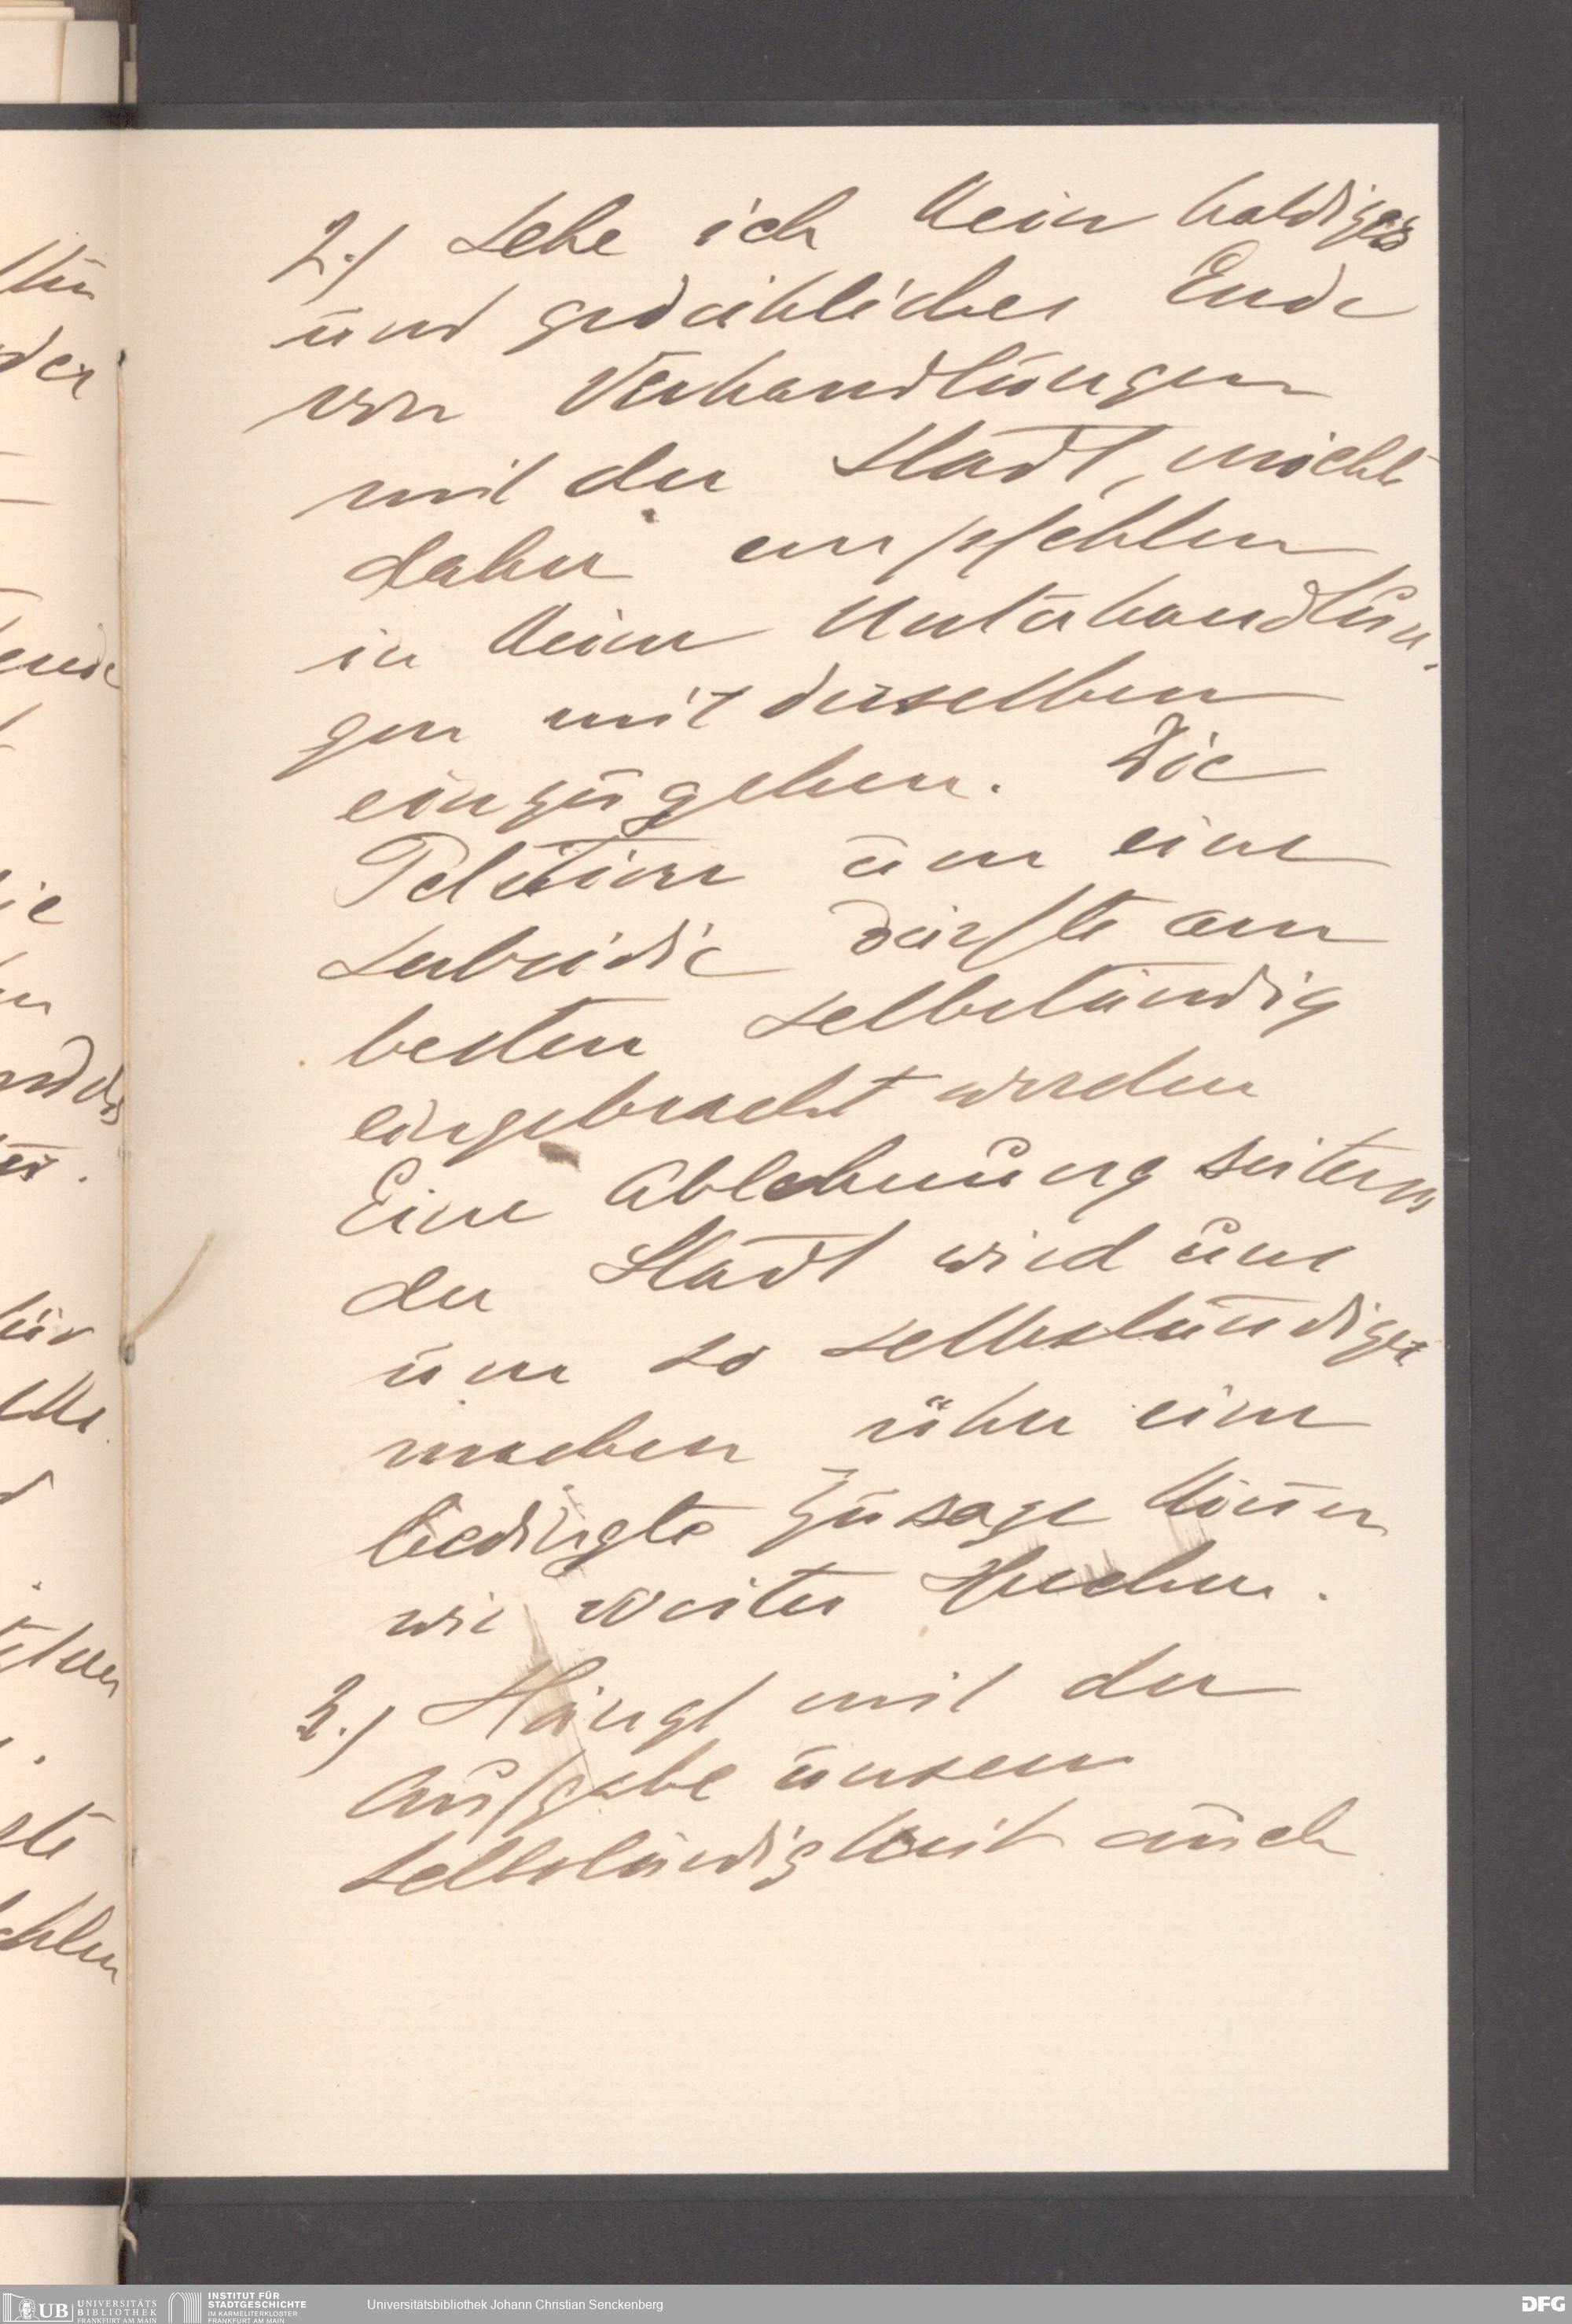 2.) Sehe ich kein baldiges
und gedeihliches Ende
von Verhandlungen
mit der Stadt, möchte
daher empfehlen
in keine Unterhandlun-
gen mit derselben
einzugehen. Die
Petition um eine
Subsidie dürfte am
besten selbständig
eingebracht werden
Eine Ablehnung seitens
der Stadt wird uns
um so selbständiger
machen, über eine
bedingte Zusage können
wir weiter sprechen.
3.) Hängt mit der
Aufgabe unserer
Selbständigkeit auch
UB UNIVERSITÄTS BIBLIOTHEK FRANKFURT AM MAIN
INSTITUT FÜR STADTGESCHICHTE IM KARMELITERKLOSTER FRANKFURT AM MAIN
Universitätsbibliothek Johann Christian Senckenberg
DFG